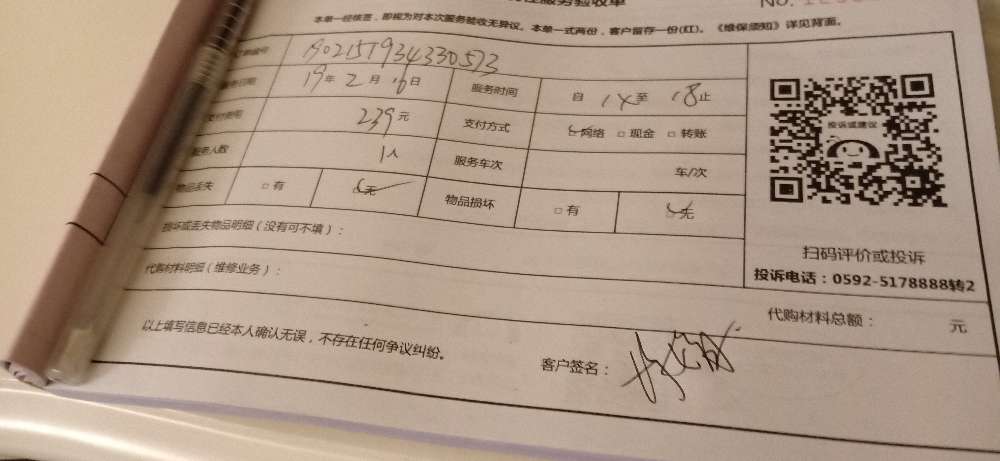 服务验收单
No.
本单一经核签，即视为对本次服务验收无异议。本单一式两份，客户留存一份(红)。《维保须知》详见背面。
编号 1902151934330573
日期 19年2月16日 服务时间 自 14至 18止
费用 239元 支付方式 ☑网络 □现金 □转账
服务人数 1人 服务车次 车/次
物品丢失 □有 ☑无 物品损坏 □有 ☑无
损坏或丢失物品明细（没有可不填）：
投诉或建议
扫码评价或投诉
投诉电话：0592-5178888转2
代购材料明细（维修业务）：
代购材料总额： 元
以上填写信息已经本人确认无误，不存在任何争议纠纷。
客户签名：